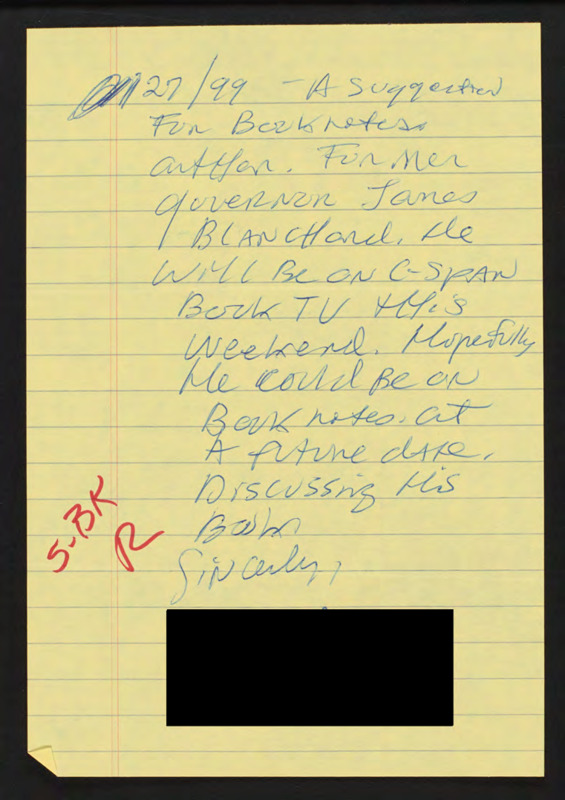 27/99 - A Suggestion
For Booknotes.
author. Former
governor James
Blanchard. He
Will Be on C-Span
Book TV this
Weekend. Hopefully
He could Be on
Booknotes. at
A future date.
Discussing His
Book.
Sincerly,
S-BK
R